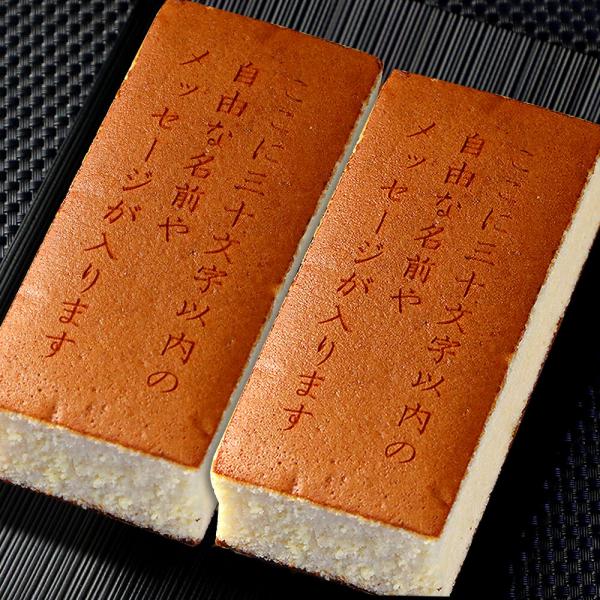 ここに三十文字以内の
自由な名前や
メッセージが入ります
ここに三十文字以内の
自由な名前や
メッセージが入ります